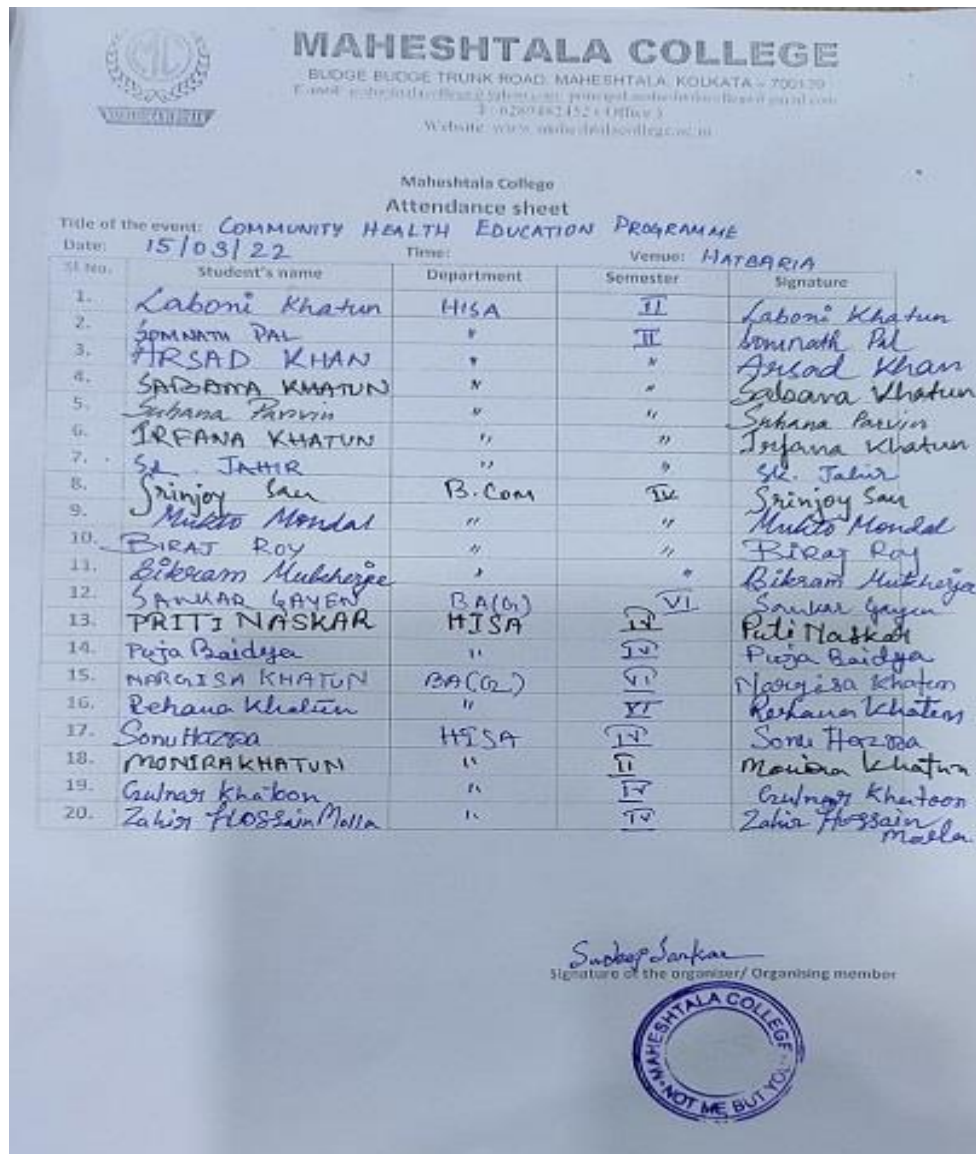 MC
MAHESHTALA COLLEGE
BUDGE BUDGE TRUNK ROAD, MAHESHTALA, KOLKATA – 700139
6289482452 ( Office )
Website: www.maheshtalacollege.ac.in
Maheshtala College
Attendance sheet
Title of the event: COMMUNITY HEALTH EDUCATION PROGRAMME
Date: 15/03/22 Time: Venue: HATBARIA
Sl. No. Student's name Department Semester Signature
1. Laboni Khatun HISA II Laboni Khatun
2. SOMNATH PAL " II Somnath Pal
3. ARSAD KHAN " " Arsad Khan
4. SABANA KHATUN " " Sabana Khatun
5. Suhana Parvin " " Suhana Parvin
6. IRFANA KHATUN " " Irfana Khatun
7. SK. JAHIR " " Sk. Jahir
8. Srinjoy Sau B.Com IV Srinjoy Sau
9. Mukto Mondal " " Mukto Mondal
10. BIRAJ ROY " " BIRAJ Roy
11. Bikram Mukherjee " " Bikram Mukherjee
12. SANKAR GAYEN BA(G) VI Sankar Gayen
13. PRITI NASKAR HISA IV Priti Naskar
14. Puja Baidya " IV Puja Baidya
15. NARGISA KHATUN BA(G) VI Nargisa Khatun
16. Rehana Khatun " VI Rehana Khatun
17. Sonu Hazra HISA IV Sonu Hazra
18. MONIRA KHATUN " II Monira Khatun
19. Gulnar Khatoon " IV Gulnar Khatoon
20. Zahir Hossain Molla " IV Zahir Hossain Molla
Sudeep Sarkar
Signature of the organiser/ Organising member
MAHESHTALA COLLEGE
NOT ME, BUT YOU